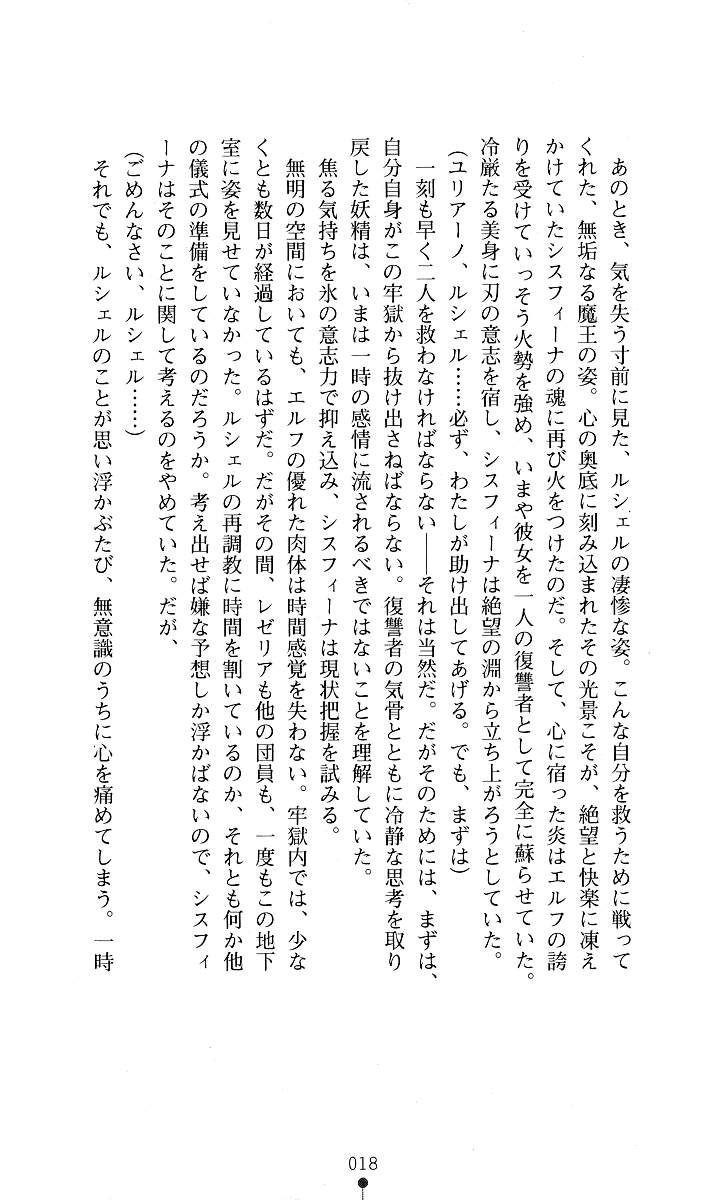 あのとき、気を失う寸前に見た、ルシェルの凄惨な姿。こんな自分を救うために戦って
くれた、無垢なる魔王の姿。心の奥底に刻み込まれたその光景こそが、絶望と快楽に凍え
かけていたシスフィーナの魂に再び火をつけたのだ。そして、心に宿った炎はエルフの誇
りを受けていっそう火勢を強め、いまや彼女を一人の復讐者として完全に蘇らせていた。
冷厳たる美身に刃の意志を宿し、シスフィーナは絶望の淵から立ち上がろうとしていた。
（ユリアーノ、ルシェル……必ず、わたしが助け出してあげる。でも、まずは）
一刻も早く二人を救わなければならない――それは当然だ。だがそのためには、まずは、
自分自身がこの牢獄から抜け出さねばならない。復讐者の気骨とともに冷静な思考を取り
戻した妖精は、いまは一時の感情に流されるべきではないことを理解していた。
焦る気持ちを氷の意志力で抑え込み、シスフィーナは現状把握を試みる。
無明の空間においても、エルフの優れた肉体は時間感覚を失わない。牢獄内では、少な
くとも数日が経過しているはずだ。だがその間、レゼリアも他の団員も、一度もこの地下
室に姿を見せていなかった。ルシェルの再調教に時間を割いているのか、それとも何か他
の儀式の準備をしているのだろうか。考え出せば嫌な予想しか浮かばないので、シスフィ
ーナはそのことに関して考えるのをやめていた。だが、
（ごめんなさい、ルシェル……）
それでも、ルシェルのことが思い浮かぶたび、無意識のうちに心を痛めてしまう。一時
018